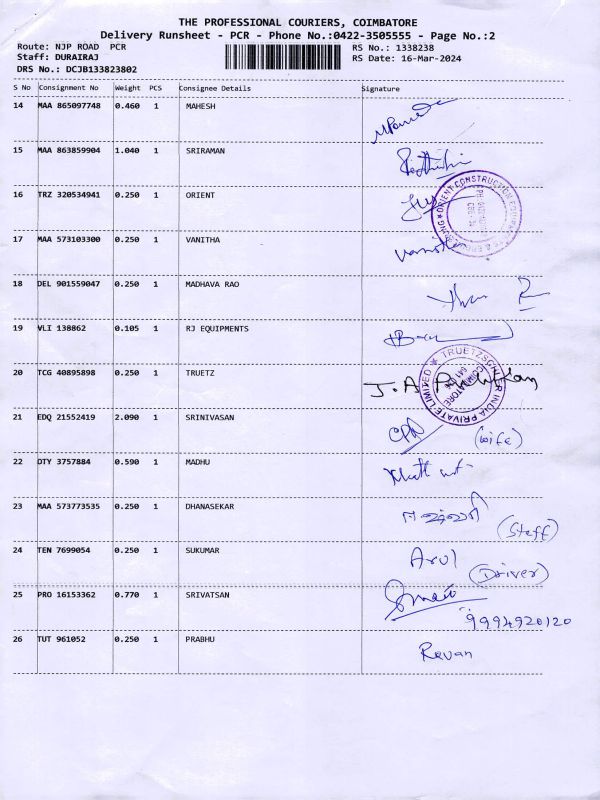 THE PROFESSIONAL COURIERS, COIMBATORE
Delivery Runsheet - PCR - Phone No.:0422-3505555 - Page No.:2
Route: NJP ROAD PCR RS No.: 1338238
Staff: DURAIRAJ RS Date: 16-Mar-2024
DRS No.: DCJB133823802
S No Consignment No Weight PCS Consignee Details Signature
14 MAA 865097748 0.460 1 MAHESH
15 MAA 863859904 1.040 1 SRIRAMAN
16 TRZ 320534941 0.250 1 ORIENT
ORIENT CONSTRUCTION
17 MAA 573103300 0.250 1 VANITHA
18 DEL 901559047 0.250 1 MADHAVA RAO
19 VLI 138862 0.105 1 RJ EQUIPMENTS
20 TCG 40895898 0.250 1 TRUETZ
TRUETZSCHLER INDIA PRIVATE LIMITED
COIMBATORE
21 EDQ 21552419 2.090 1 SRINIVASAN (wife)
22 DTY 3757884 0.590 1 MADHU
23 MAA 573773535 0.250 1 DHANASEKAR (Staff)
24 TEN 7699054 0.250 1 SUKUMAR Arul (Driver)
25 PRO 16153362 0.770 1 SRIVATSAN 9994920120
26 TUT 961052 0.250 1 PRABHU Revan